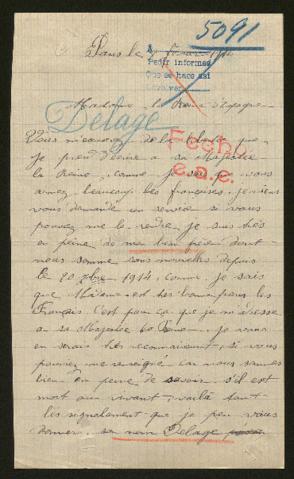 5091
Paris le
A
Pedir informes
Que se hace así
Delage
Fecho
Madame la Reine d'Espagne
Vous m'excuserez de la liberté que
je prend d'écrire a sa Majestée
la Reine, comme je sais que vous
aimez beaucoup les françaises, je viens
vous demander un service si vous
pouvez me le rendre, je suis très
en peine de mon frère dont
nous somme sans nouvelles depuis
le 20 9bre 1914, comme je sais
que est très bonne pour les
Français. C'est pour ça que je m'adresse
a sa Majestée la Reine. Je vous
en serais très reconnaissant, si vous
pouviez me renseigné car nous sommes
bien en peine de savoir s'il est
mort ou vivant, voilà tout
les signalement que je peu vous
donner, son nom Delage